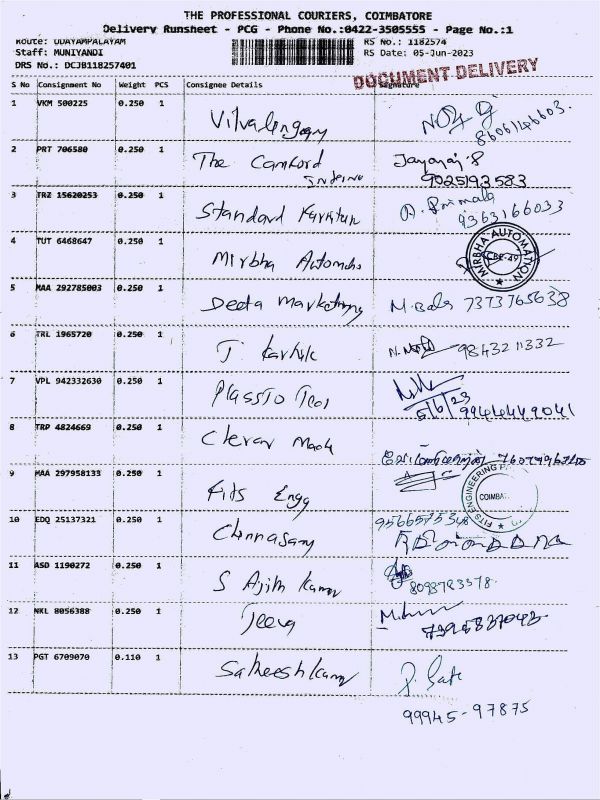 THE PROFESSIONAL COURIERS, COIMBATORE
Delivery Runsheet - PCG - Phone No.:0422-3505555 - Page No.:1
Route: UDAYAMPALAYAM
RS No.: 1182574
Staff: MUNIYANDI
RS Date: 05-Jun-2023
DRS No.: DCJB118257401
DOCUMENT DELIVERY
S No Consignment No Weight PCS Consignee Details Signature
1 VKM 500225 0.250 1
8606146603.
2 PRT 706580 0.250 1 The Camford Jayaraj.P
9025193583
3 TRZ 15620253 0.250 1 Standard
9363166033
4 TUT 6468647 0.250 1 Mirbha MIRBHA AUTOMATION CBE-49
5 MAA 292785003 0.250 1 Deeta Marketing 7373765638
6 TRL 1965720 0.250 1 T. Karthik 9843211332
7 VPL 942332630 0.250 1
5/6/23 9944449041
8 TRP 4824669 0.250 1
9 MAA 297958133 0.250 1 Fits Engg FITS ENGINEERING
10 EDQ 25137321 0.250 1 Chinnasamy
11 ASD 1190272 0.250 1 S Ajith Kumar
12 NKL 8056388 0.250 1 Jeeva
13 PGT 6709070 0.110 1 Satheeshkumar
99945-97875